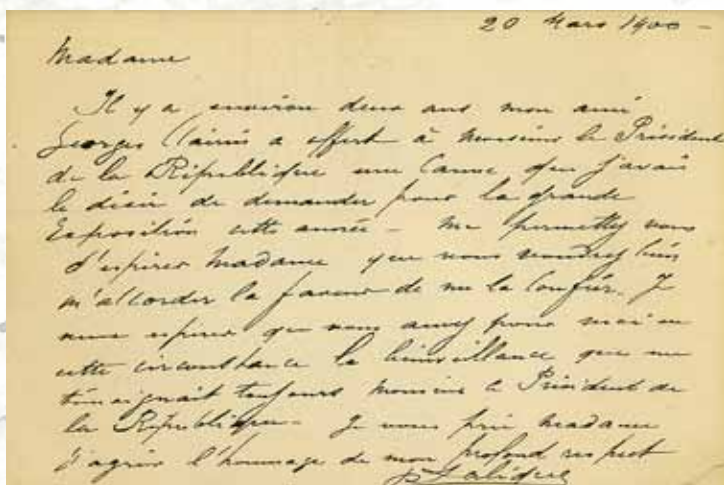 20 Mars 1900 -
Madame
Il y a environ deux ans mon ami
Georges Clairin a offert à Monsieur le Président
de la République une Canne que j'avais
le désir de demander pour la grande
Exposition cette année - me permettez vous
d'espérer Madame que vous voudrez bien
m'accorder la faveur de me la confier. Je
veux espérer que vous aurez pour moi en
cette circonstance la bienveillance que me
témoignait toujours Monsieur le Président de
la République - Je vous prie Madame
d'agréer l'hommage de mon profond respect
Lalique